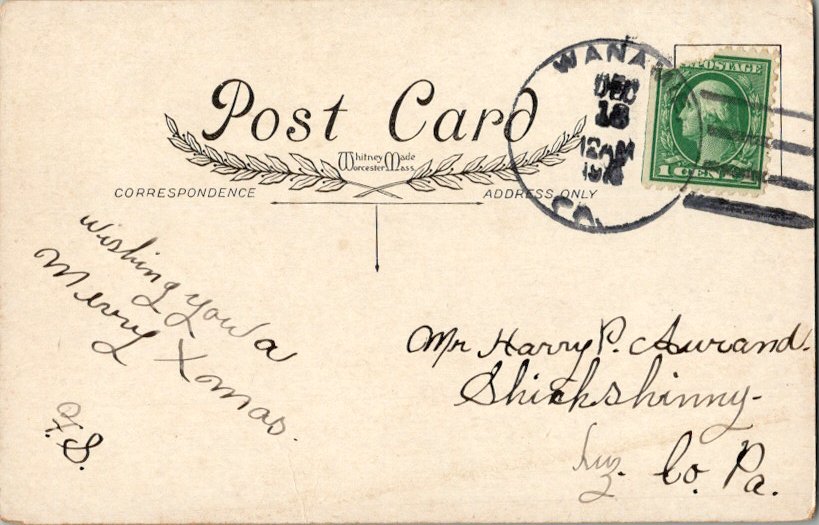 Post Card
Whitney Made
Worcester Mass.
CORRESPONDENCE
ADDRESS ONLY
WANAM
DEC
18
12 AM
191
PA.
POSTAGE
1 CENT
Wishing you a
Merry Xmas.
S.
Mr Harry P. Aurand.
Shickshinny-
Luz. Co. Pa.